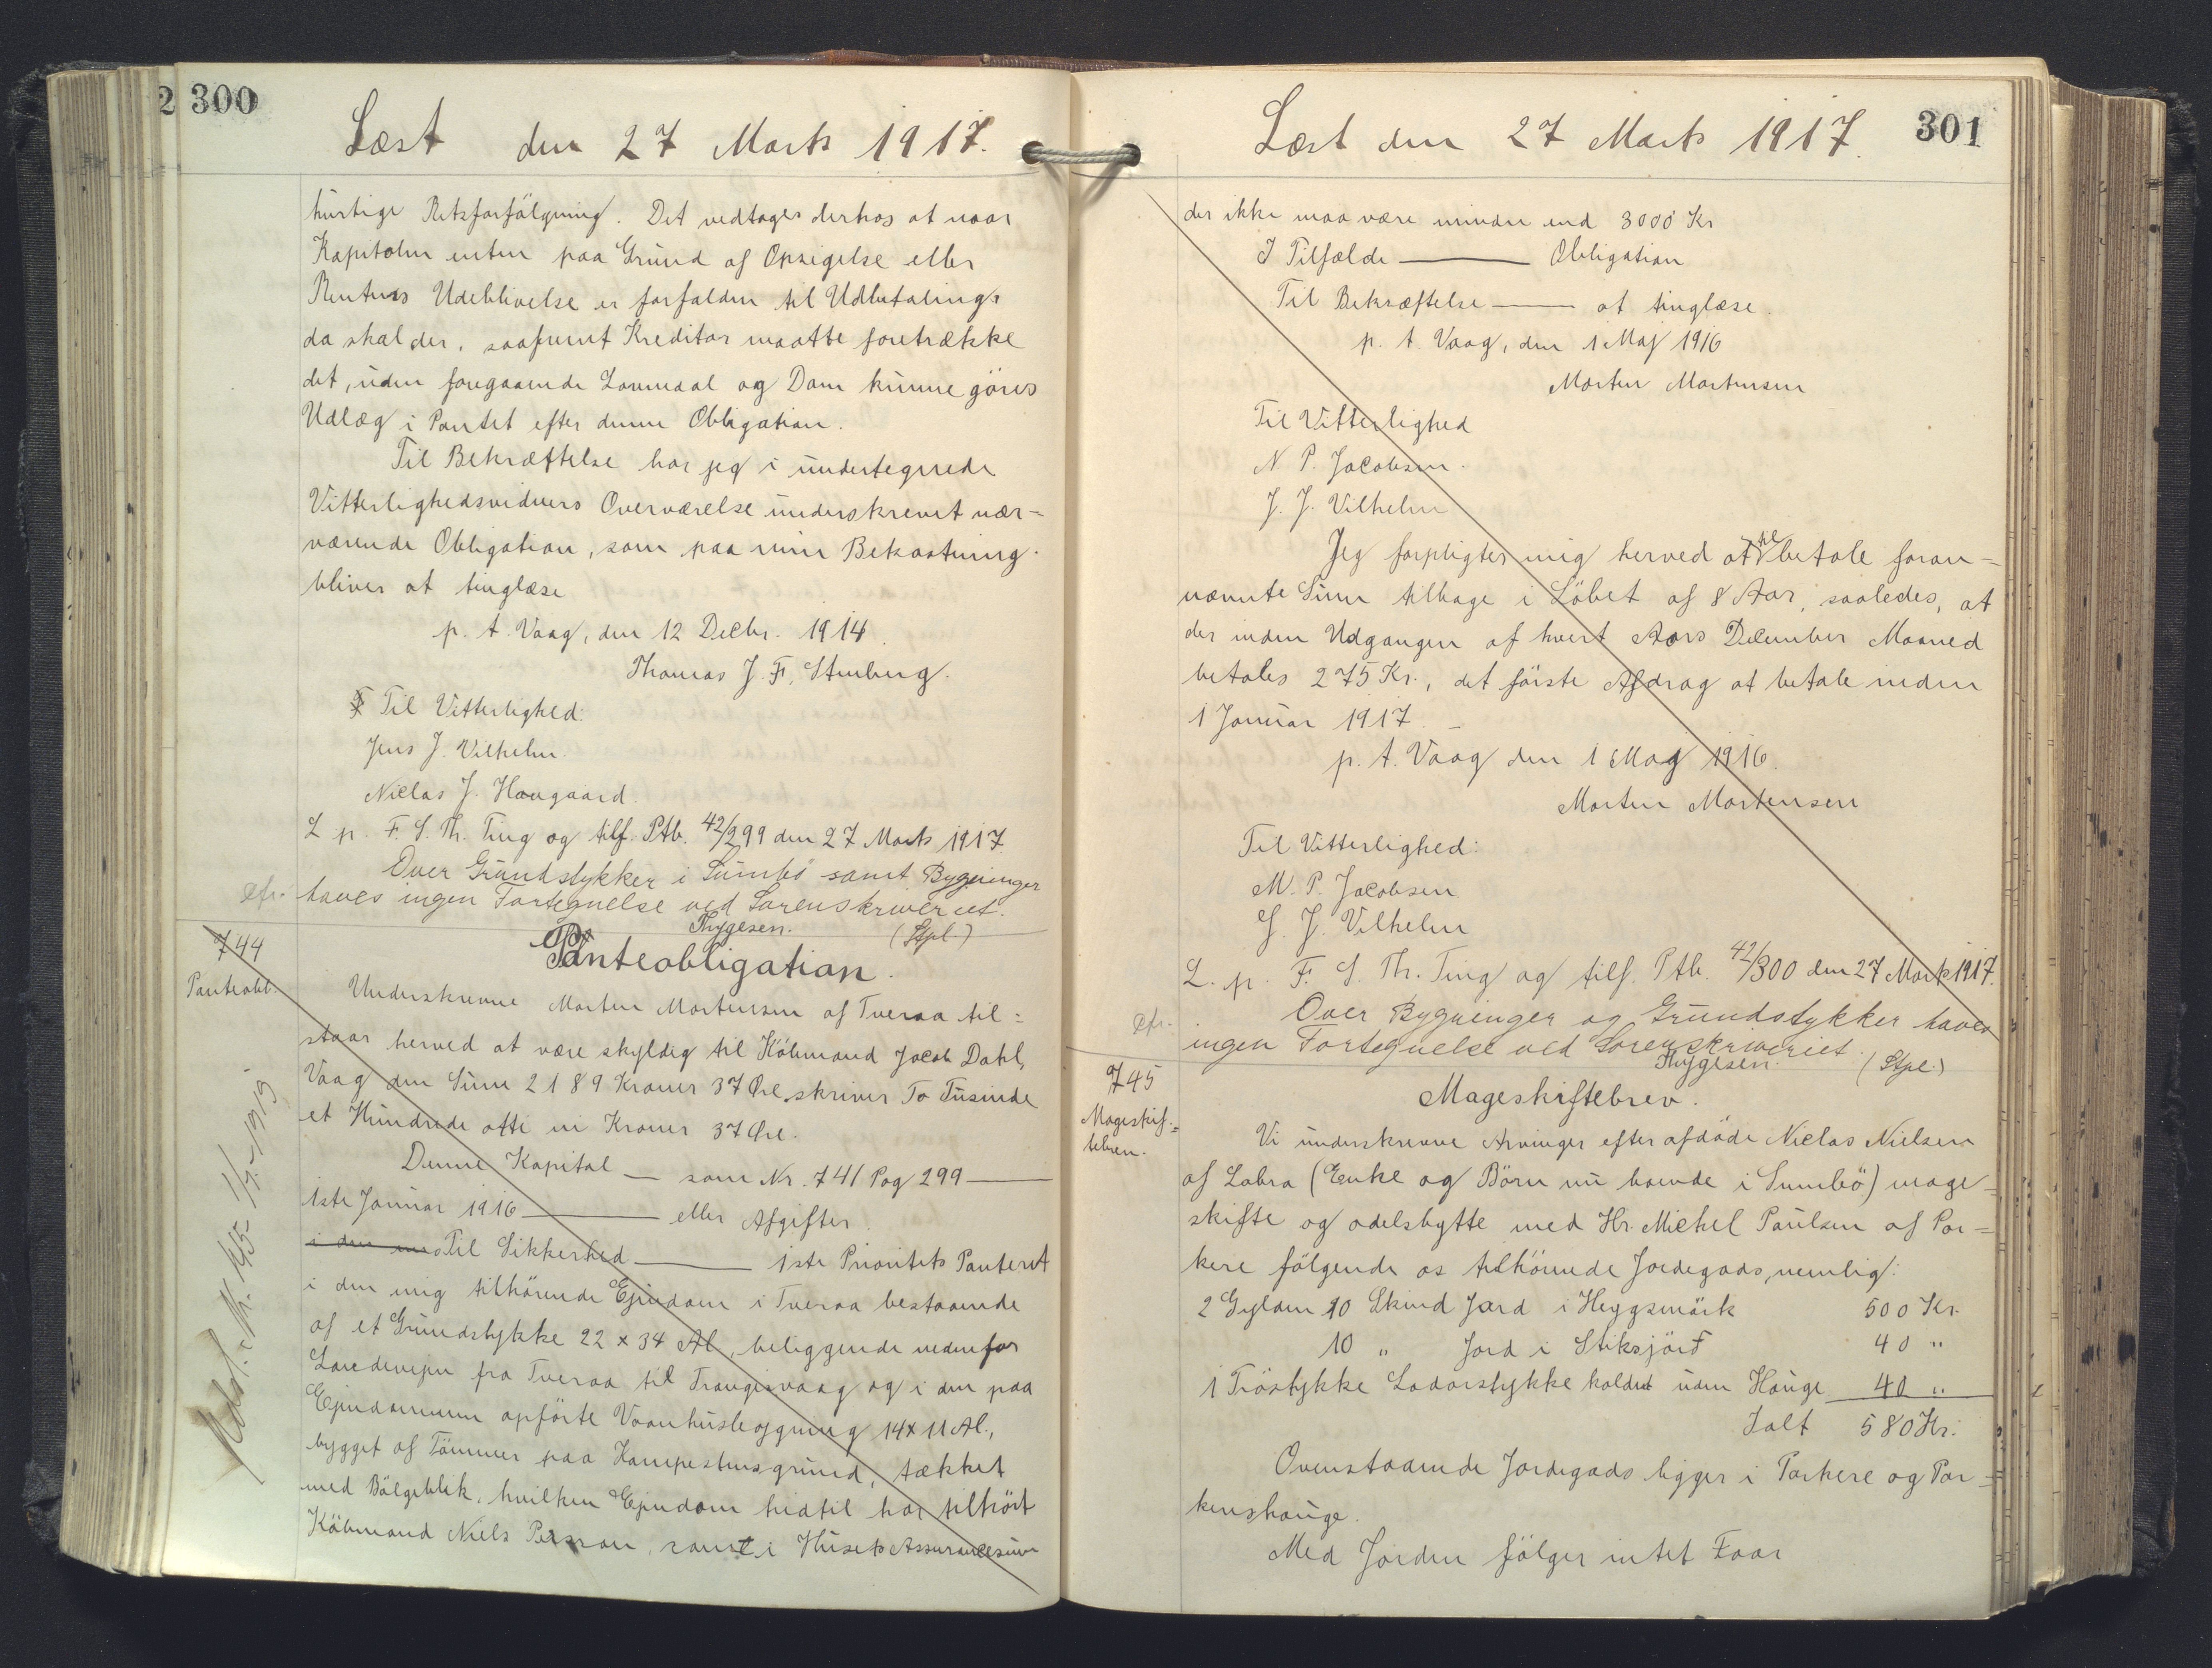 300
Læst den 27 Marts 1917.
hurtige Retsforfölgning. Det vedtages derhos at naar
Kapitalen enten paa Grund af Opsigelse eller
Rentens Udeblivelse er forfalden til Udbetaling
da skal der, saafremt Kreditor maatte foretrække
det, uden foregaaende Lovmaal og Dom kunne göres
Udlæg i Pantet efter denne Obligation.
Til Bekræftelse har jeg i undertegnede
Vitterlighedsvidners Overværelse underskrevet nær-
værende Obligation, som paa min Bekostning
bliver at tinglæse
p. t. Vaag, den 12 Decbr. 1914.
Thomas J. F. Stenberg.
Til Vitterlighed:
Jens J. Vilhelm.
Niclas J. Hovgaard.
L. p. F. S. Th. Ting og tilf. Ptb. 42/299 den 27 Marts 1917.
Over Grundstykker i Sumbö samt Bygninger
Efr. haves ingen Fortegnelse ved Sorenskriveriet.
Thygesen. (Stpl.)
744
Panteobl.
Panteobligation.
Underskrevne Morten Mortensen af Tveraa til-
staar herved at være skyldig til Köbmand Jacob Dahl,
Vaag den Sum 2189 Kroner 37 Øre skriver To Tusinde
et Hundrede otti ni Kroner 37 Øre.
Denne Kapital — som Nr. 741 Pag 299 —
1ste Januar 1916 — eller Afgifter.
i den Til Sikkerhed — 1ste Prioritets Panteret
i den mig tilhörende Ejendom i Tveraa bestaaende
af et Grundstykke 22 x 34 Al, beliggende nedenfor
Landevejen fra Tveraa til Trangisvaag og i den paa
Ejendommen opförte Vaanhusbygning 14 x 11 Al.,
bygget af Tömmer paa Kampestensgrund, tækket
med Bölgeblik, hvilken Ejendom hidtil har tilhört
Köbmand Niels Persson, samt i Husets Assurancesum
301
Læst den 27 Marts 1917.
der ikke maa være mindre end 3000 Kr
I Tilfælde — Obligation
Til Bekræftelse — at tinglæse.
p. t. Vaag, den 1 Maj 1916
Morten Mortensen
Til Vitterlighed
N P. Jacobsen.
J. J. Vilhelm
Jeg forpligter mig herved at betale foran-
nævnte Sum tilbage i Löbet af 8 Aar, saaledes, at
der inden Udgangen af hvert Aars December Maaned
betales 275 Kr., det förste Afdrag at betale inden
1 Januar 1917. —
p. t. Vaag den 1 Maj 1916.
Morten Mortensen
Til Vitterlighed:
M. P. Jacobsen
J. J. Vilhelm
L. p. F. S. Th. Ting og tilf. Ptb. 42/300 den 27 Marts 1917.
Efr. Over Bygninger og Grundstykker haves
ingen Fortegnelse ved Sorenskriveriet.
Thygesen. (Stpl.)
745
Mageskif-
tebrev.
Mageskiftebrev.
Vi underskrevne Arvinger efter afdöde Niclas Nielsen
af Lobra (Enke og Börn nu boende i Sumbö) mage-
skifte og odelsbytte med Hr. Michel Paulsen af Por-
kere fölgende os tilhörende Jordegods, nemlig:
2 Gylden 10 Skind Jord i Heygsmörk 500 Kr.
10 " Jord i Stiksjörd 40 "
1 Tröstykke Ladarstykke kaldet uden Hauge 40 "
Ialt 580 Kr.
Ovenstaaende Jordegods ligger i Porkere og Por-
kershauge.
Med Jorden fölger intet Faar